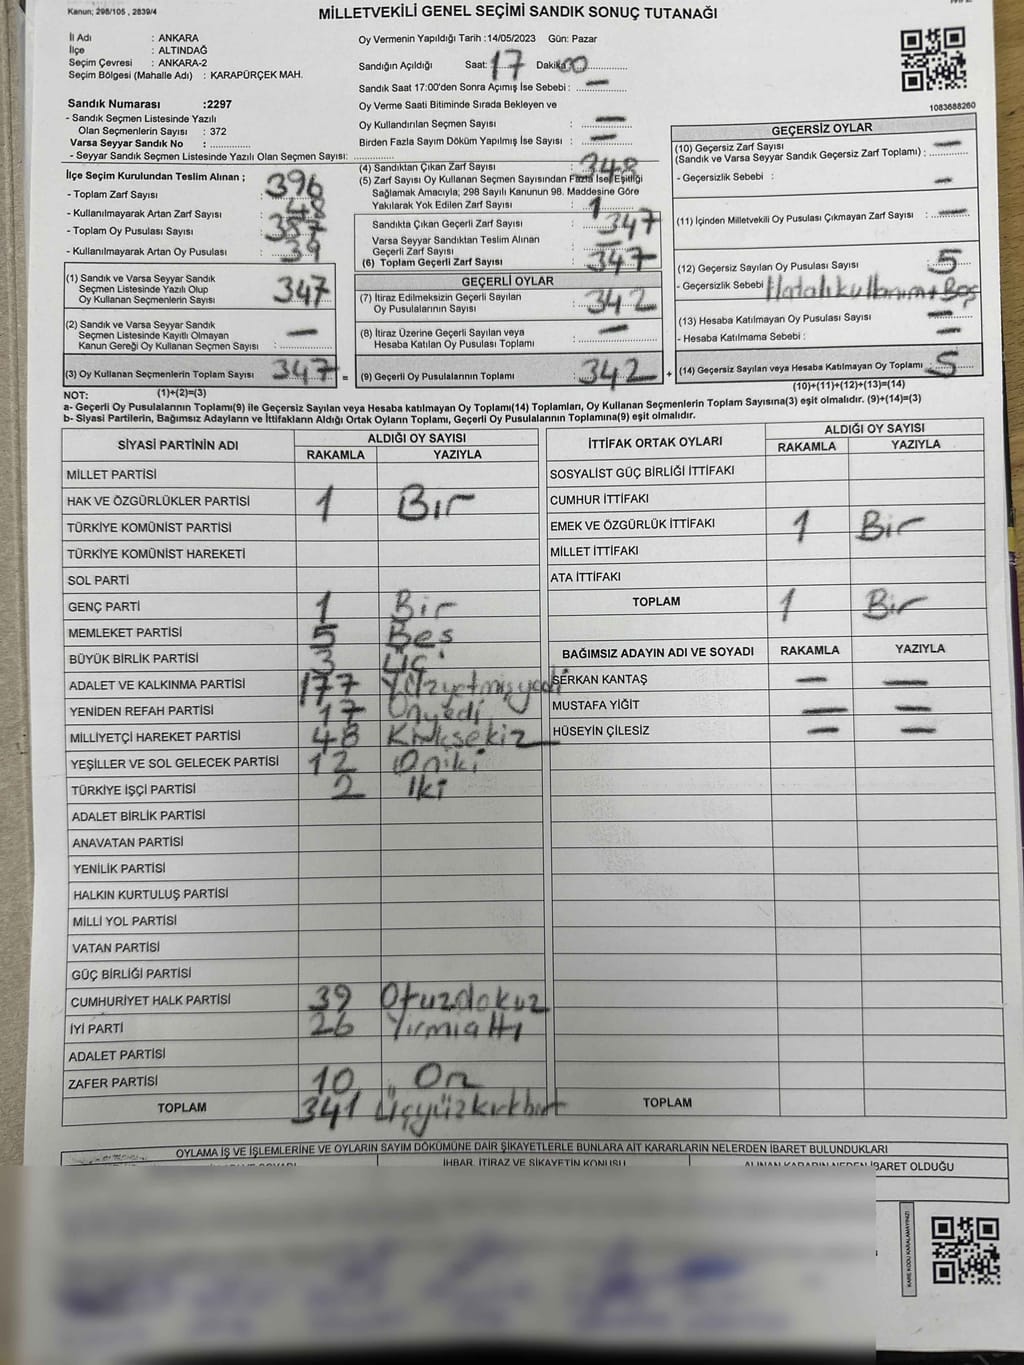 Kanun; 298/105 , 2839/4
MİLLETVEKİLİ GENEL SEÇİMİ SANDIK SONUÇ TUTANAĞI
İl Adı : ANKARA
İlçe : ALTINDAĞ
Seçim Çevresi : ANKARA-2
Seçim Bölgesi (Mahalle Adı) : KARAPÜRÇEK MAH.
Sandık Numarası :2297
- Sandık Seçmen Listesinde Yazılı
Olan Seçmenlerin Sayısı : 372
Varsa Seyyar Sandık No : ..............
- Seyyar Sandık Seçmen Listesinde Yazılı Olan Seçmen Sayısı: ..............
Oy Vermenin Yapıldığı Tarih :14/05/2023 Gün: Pazar
Sandığın Açıldığı Saat: 17 Dakika: 00
Sandık Saat 17:00'den Sonra Açımış İse Sebebi : —
Oy Verme Saati Bitiminde Sırada Bekleyen ve
Oy Kullandırılan Seçmen Sayısı : —
Birden Fazla Sayım Döküm Yapılmış İse Sayısı : —
1083688260
İlçe Seçim Kurulundan Teslim Alınan ;
- Toplam Zarf Sayısı : 396
- Kullanılmayarak Artan Zarf Sayısı : 48
- Toplam Oy Pusulası Sayısı :
- Kullanılmayarak Artan Oy Pusulası : 39
(1) Sandık ve Varsa Seyyar Sandık
Seçmen Listesinde Yazılı Olup
Oy Kullanan Seçmenlerin Sayısı 347
(2) Sandık ve Varsa Seyyar Sandık
Seçmen Listesinde Kayıtlı Olmayan
Kanun Gereği Oy Kullanan Seçmen Sayısı : —
(3) Oy Kullanan Seçmenlerin Toplam Sayısı 347 =
(1)+(2)=(3)
(4) Sandıktan Çıkan Zarf Sayısı : 348
(5) Zarf Sayısı Oy Kullanan Seçmen Sayısından Fazla İse, Eşitliği
Sağlamak Amacıyla; 298 Sayılı Kanunun 98. Maddesine Göre
Yakılarak Yok Edilen Zarf Sayısı : 1
Sandıkta Çıkan Geçerli Zarf Sayısı : 347
Varsa Seyyar Sandıktan Teslim Alınan
Geçerli Zarf Sayısı : —
(6) Toplam Geçerli Zarf Sayısı : 347
GEÇERLİ OYLAR
(7) İtiraz Edilmeksizin Geçerli Sayılan
Oy Pusulalarının Sayısı : 342
(8) İtiraz Üzerine Geçerli Sayılan veya
Hesaba Katılan Oy Pusulası Toplamı : —
(9) Geçerli Oy Pusulalarının Toplamı : 342 +
GEÇERSİZ OYLAR
(10) Geçersiz Zarf Sayısı
(Sandık ve Varsa Seyyar Sandık Geçersiz Zarf Toplamı) : —
- Geçersizlik Sebebi : —
(11) İçinden Milletvekili Oy Pusulası Çıkmayan Zarf Sayısı : —
(12) Geçersiz Sayılan Oy Pusulası Sayısı : 5
- Geçersizlik Sebebi : Hatalı kullanım Beş
(13) Hesaba Katılmayan Oy Pusulası Sayısı : —
- Hesaba Katılmama Sebebi : —
(14) Geçersiz Sayılan veya Hesaba Katılmayan Oy Toplamı : 5
(10)+(11)+(12)+(13)=(14)
NOT:
a- Geçerli Oy Pusulalarının Toplamı(9) ile Geçersiz Sayılan veya Hesaba katılmayan Oy Toplamı(14) Toplamları, Oy Kullanan Seçmenlerin Toplam Sayısına(3) eşit olmalıdır. (9)+(14)=(3)
b- Siyasi Partilerin, Bağımsız Adayların ve İttifakların Aldığı Ortak Oyların Toplamı, Geçerli Oy Pusulalarının Toplamına(9) eşit olmalıdır.
SİYASİ PARTİNİN ADI ALDIĞI OY SAYISI
RAKAMLA YAZIYLA
MİLLET PARTİSİ
HAK VE ÖZGÜRLÜKLER PARTİSİ 1 Bir
TÜRKİYE KOMÜNİST PARTİSİ
TÜRKİYE KOMÜNİST HAREKETİ
SOL PARTİ
GENÇ PARTİ 1 Bir
MEMLEKET PARTİSİ 5 Beş
BÜYÜK BİRLİK PARTİSİ 3 Üç
ADALET VE KALKINMA PARTİSİ 177 Yüzyetmişyedi
YENİDEN REFAH PARTİSİ 17 Onyedi
MİLLİYETÇİ HAREKET PARTİSİ 48 Kırksekiz
YEŞİLLER VE SOL GELECEK PARTİSİ 12 Oniki
TÜRKİYE İŞÇİ PARTİSİ 2 İki
ADALET BİRLİK PARTİSİ
ANAVATAN PARTİSİ
YENİLİK PARTİSİ
HALKIN KURTULUŞ PARTİSİ
MİLLİ YOL PARTİSİ
VATAN PARTİSİ
GÜÇ BİRLİĞİ PARTİSİ
CUMHURİYET HALK PARTİSİ 39 Otuzdokuz
İYİ PARTİ 26 Yirmialtı
ADALET PARTİSİ
ZAFER PARTİSİ 10 On
TOPLAM 341 Üçyüzkırkbir
İTTİFAK ORTAK OYLARI ALDIĞI OY SAYISI
RAKAMLA YAZIYLA
SOSYALİST GÜÇ BİRLİĞİ İTTİFAKI
CUMHUR İTTİFAKI
EMEK VE ÖZGÜRLÜK İTTİFAKI 1 Bir
MİLLET İTTİFAKI
ATA İTTİFAKI
TOPLAM 1 Bir
BAĞIMSIZ ADAYIN ADI VE SOYADI RAKAMLA YAZIYLA
SERKAN KANTAŞ — —
MUSTAFA YİĞİT — —
HÜSEYİN ÇİLESİZ — —
TOPLAM
OYLAMA İŞ VE İŞLEMLERİNE VE OYLARIN SAYIM DÖKÜMÜNE DAİR ŞİKAYETLERLE BUNLARA AİT KARARLARIN NELERDEN İBARET BULUNDUKLARI
İHBAR, İTİRAZ VE ŞİKAYETİN KONUSU
ALINAN KARARIN NEDEN İBARET OLDUĞU
KARE KODU KARALAMAYINIZ!